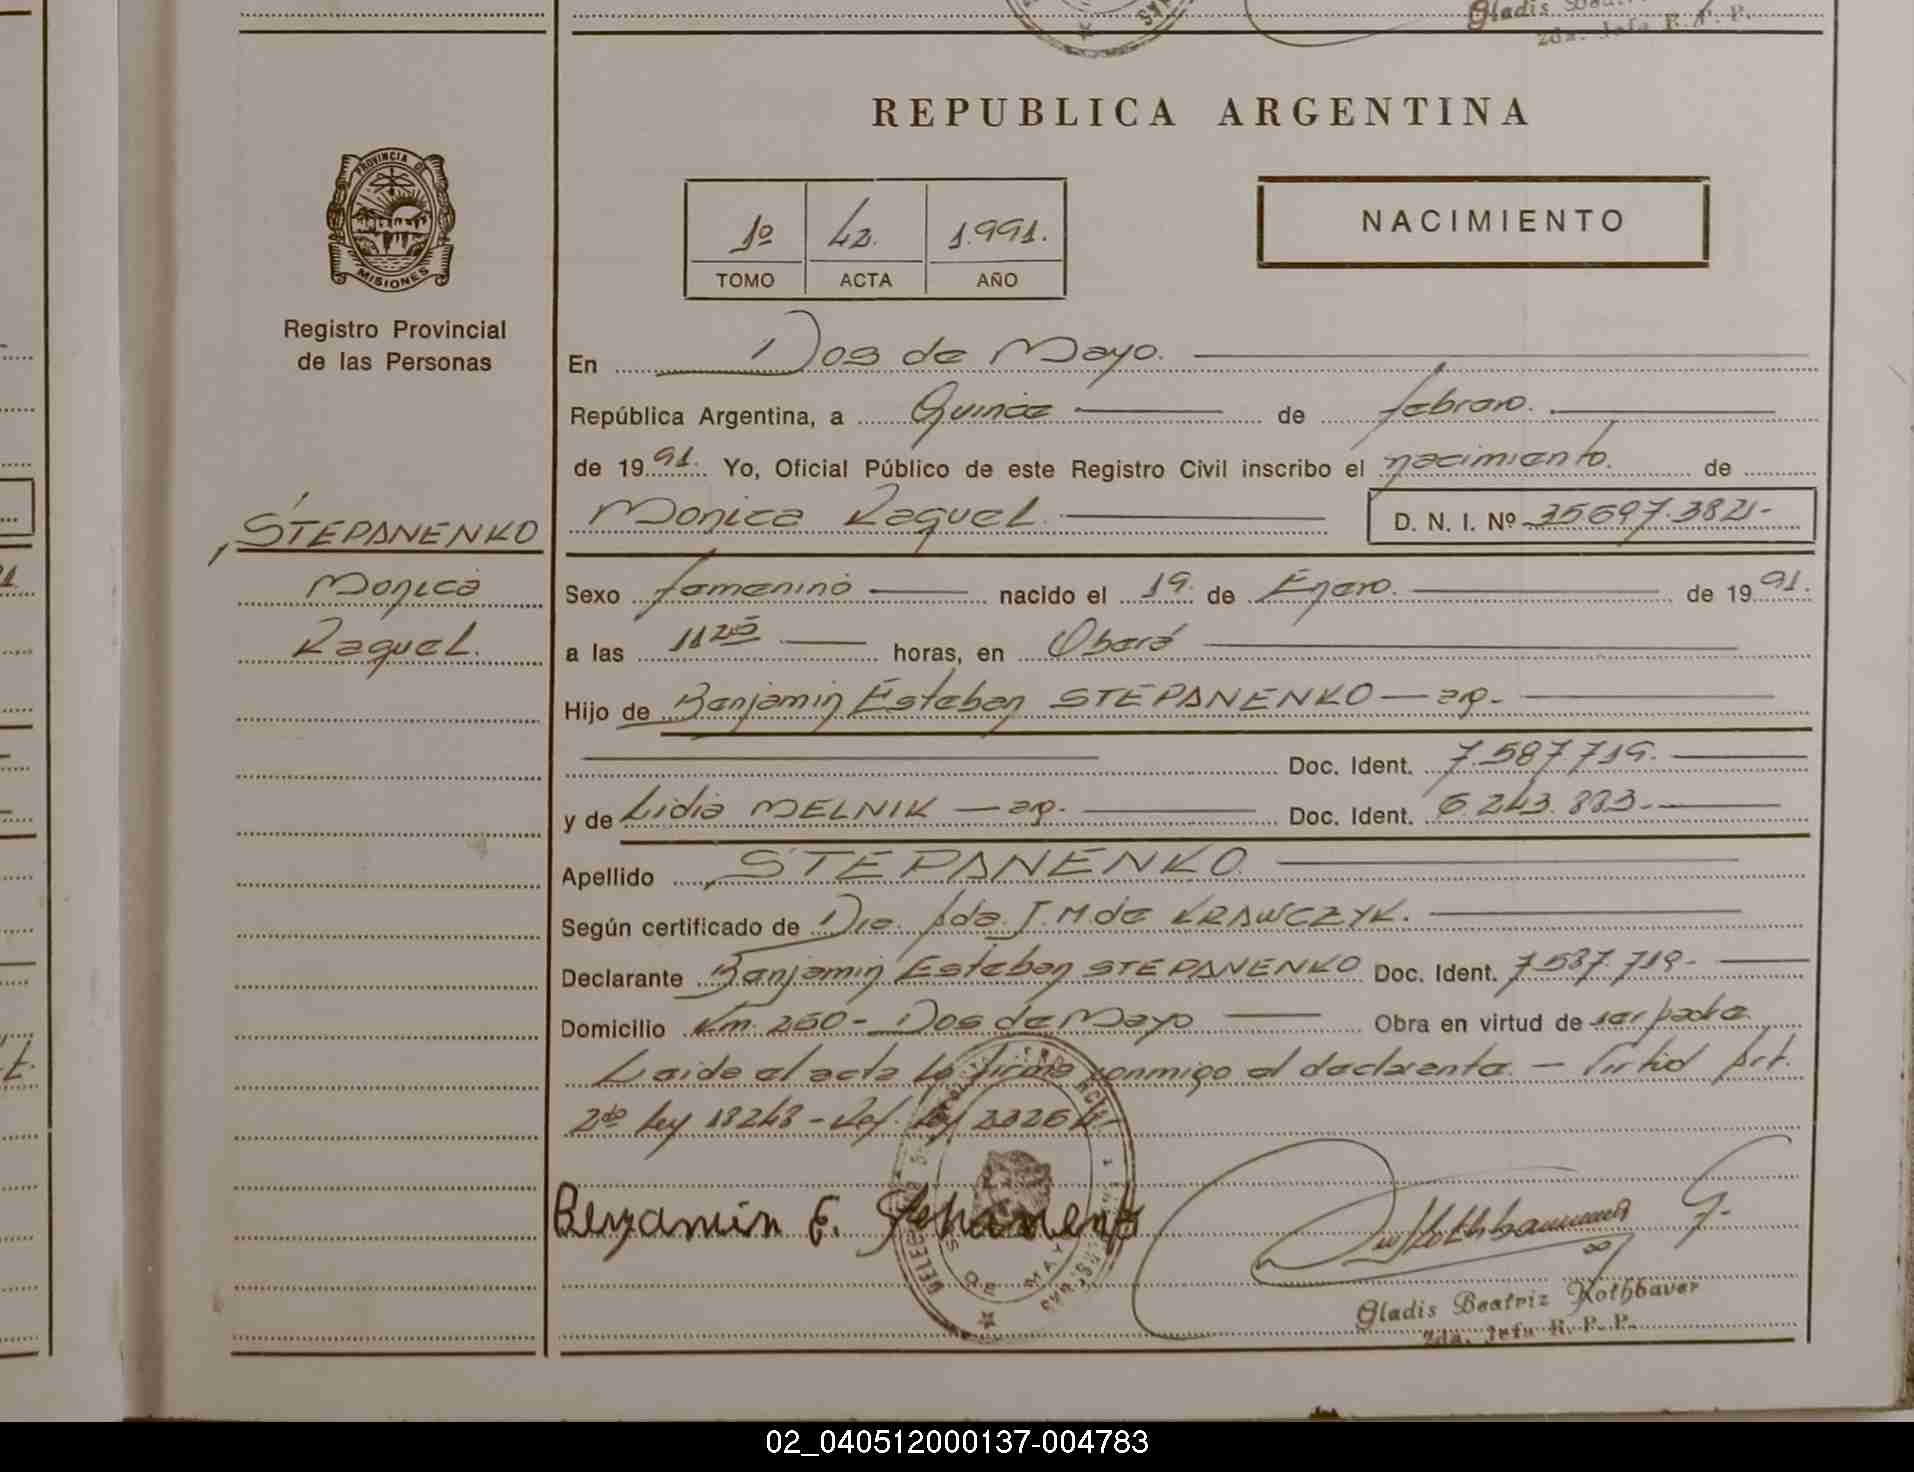 Gladis
2da. Jefa R. P. P.
REPUBLICA ARGENTINA
PROVINCIA DE
MISIONES
Registro Provincial
de las Personas
1º 42. 1.991.
TOMO ACTA AÑO
NACIMIENTO
En Dos de Mayo.
República Argentina, a Quince de febrero.
de 1991. Yo, Oficial Público de este Registro Civil inscribo el nacimiento. de
Monica Raquel. D. N. I. Nº 35697.382.-
STEPANENKO
Monica
Raquel.
Sexo femenino nacido el 19. de Enero. de 1991.
a las 11 25 horas, en Oberá
Hijo de Benjamin Esteban STEPANENKO — arg.-
Doc. Ident. 7.587.719.
y de Lidia MELNIK — arg. Doc. Ident. 6.243.883.-
Apellido STEPANENKO
Según certificado de Dra. Ada. J. M. de KRAWCZYK.
Declarante Benjamin Esteban STEPANENKO Doc. Ident. 7.587.719-
Domicilio Km. 260 - Dos de Mayo Obra en virtud de ser padre
Leida el acta la firma conmigo el declarante. — Art.
2do ley 18248 - ley
Benjamin E.
DE MAYO
Gladis Beatriz Rothbaver
2da. Jefa R. P. P.
02_040512000137-004783